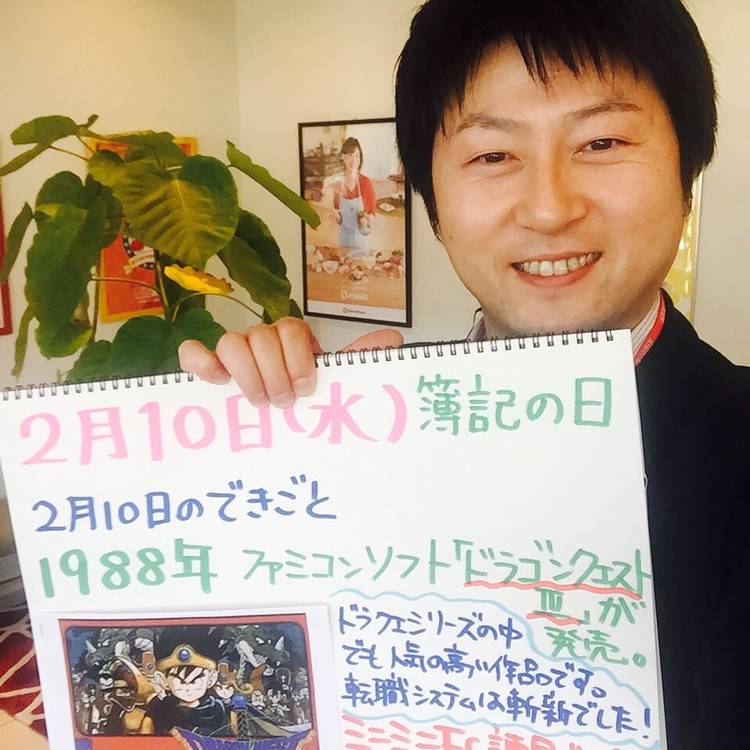 2月10日(水) 簿記の日
2月10日のできごと
1988年 ファミコンソフト「ドラゴンクエスト
III」が
発売。
ドラクエシリーズの中
でも人気の高い作品です。
転職システムは斬新でした!
DRAGON QUEST